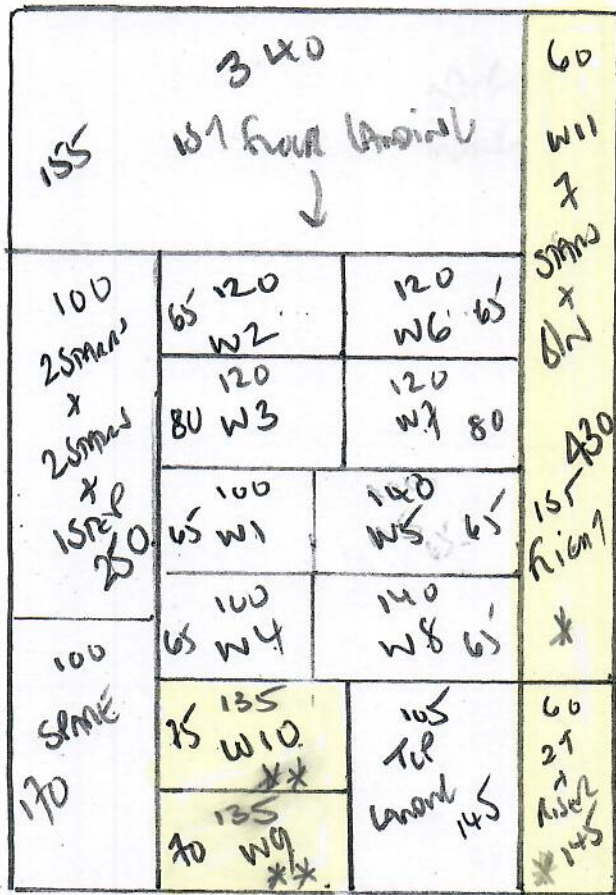 340
155
1ST FLOOR LANDING
↓
60
W11
7
STAIRS
+
430
1ST
FLIGHT
*
100
2 STAIRS
+
2 STAIRS
+
1 STEP
250
120
65
W2
120
W6 65
120
80 W3
120
W7 80
100
65 W1
140
W5 65
100
65 W4
140
W8 65
100
SPARE
170
135
75 W10
**
135
70 W9
**
105
TOP
LANDING
145
60
2T
+
RISER
* 145